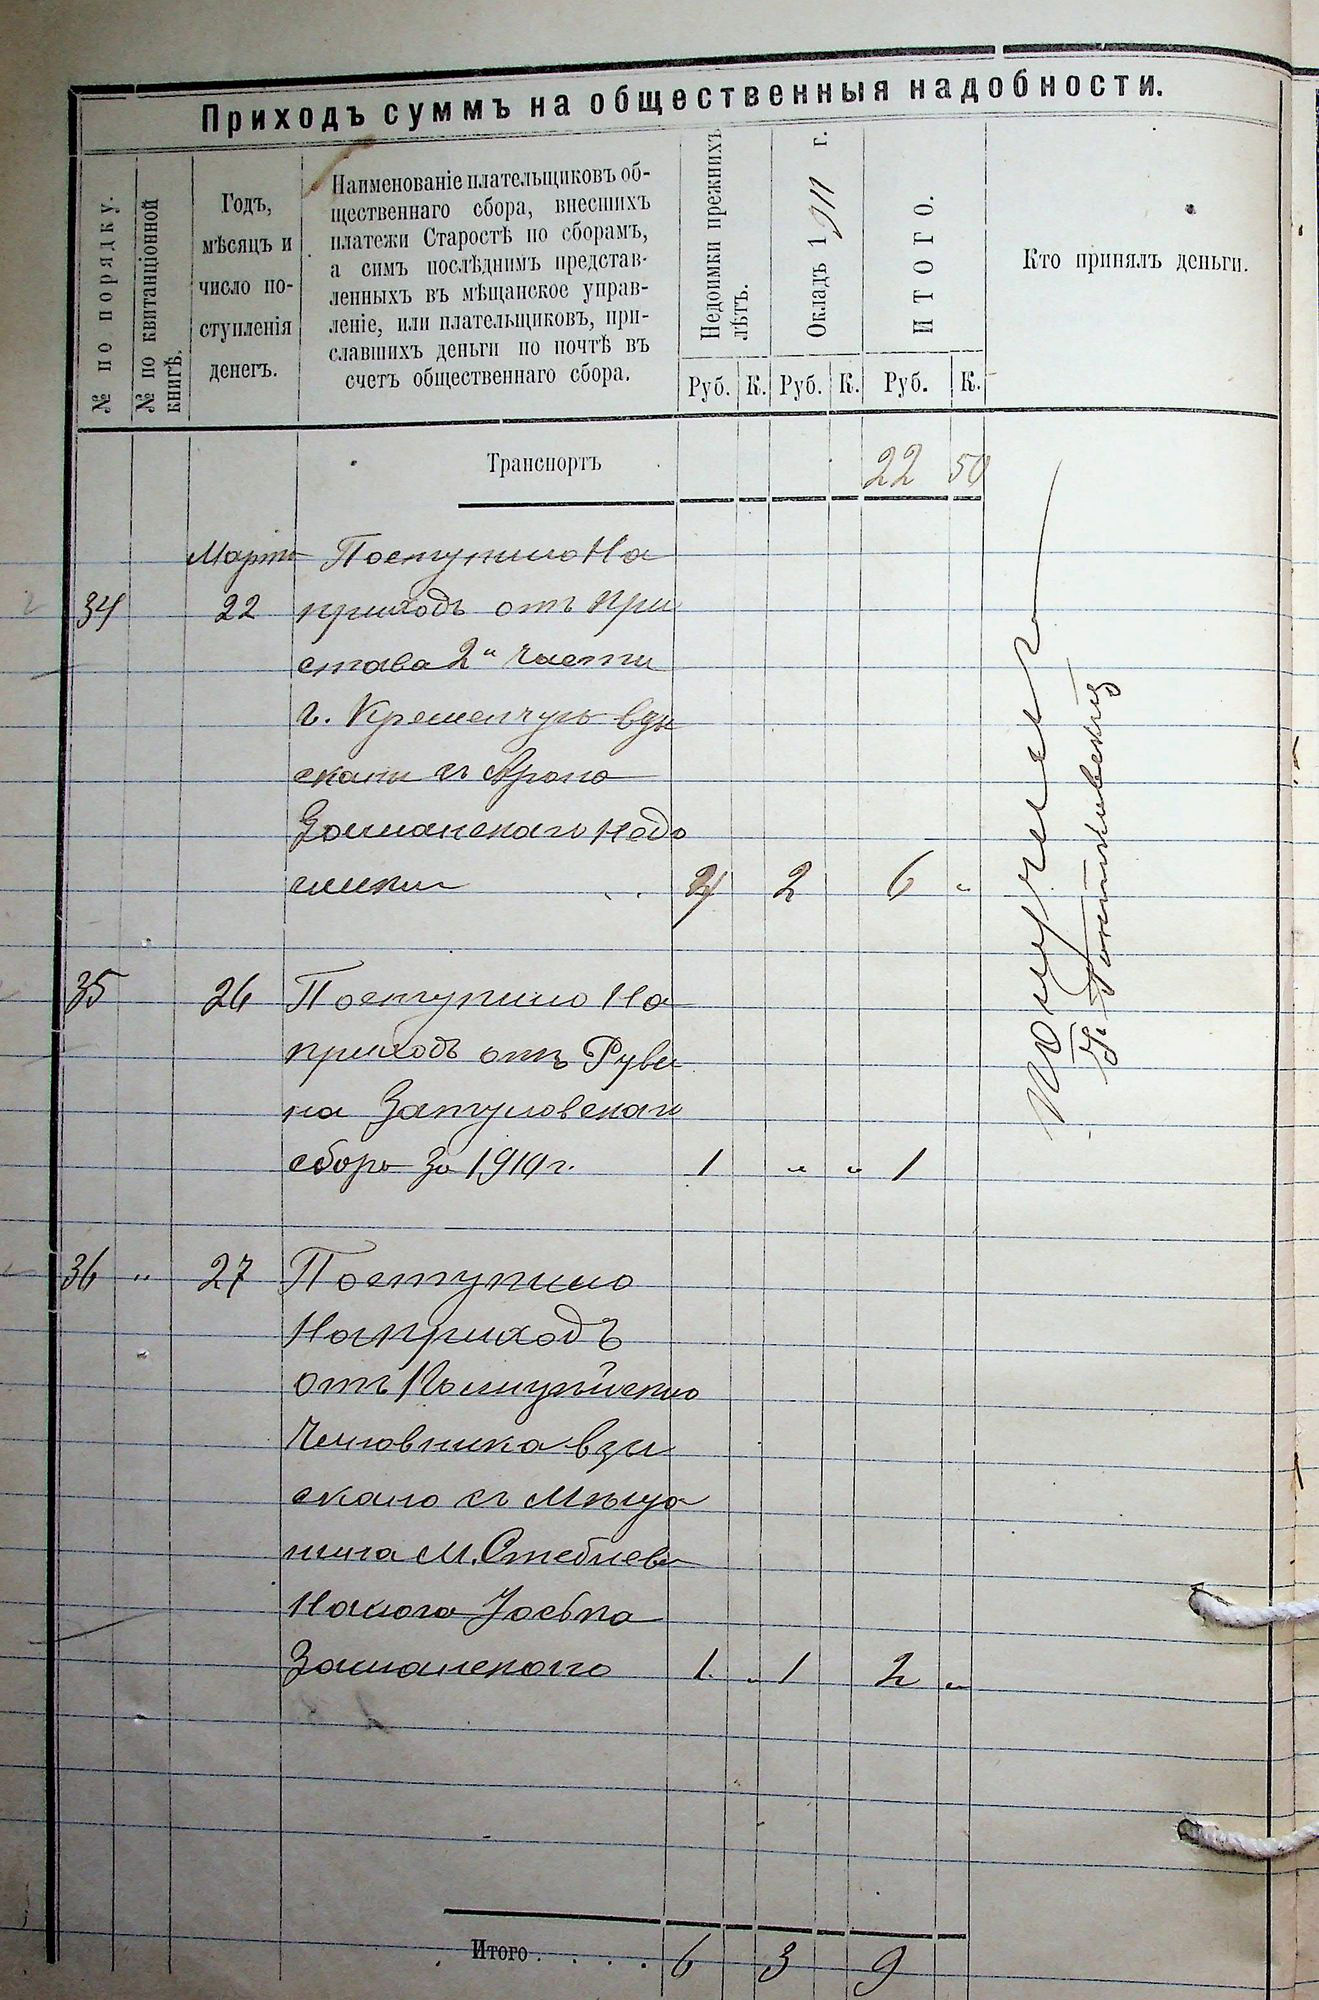 Приходъ суммъ на общественныя надобности.
№ по порядку.
№ по квитанціонной
книгѣ.
Годъ,
мѣсяцъ и
число по-
ступленія
денегъ.
Наименованіе плательщиковъ об-
щественнаго сбора, внесшихъ
платежи Старостѣ по сборамъ,
а симъ послѣднимъ представ-
ленныхъ въ мѣщанское управ-
леніе, или плательщиковъ, при-
славшихъ деньги по почтѣ въ
счетъ общественнаго сбора.
Недоимки прежнихъ
лѣтъ.
Окладъ 1911 г.
ИТОГО.
Кто принялъ деньги.
Руб. К. Руб. К. Руб. К.
Транспортъ 22 50
Марта Поступило На
34 22 приходъ от при
става 2й части
г. Кременчугъ взы
скани съ Арона
Заманскаго Недо
имки 4 2 6 "
35 26 Поступило На
приходъ отъ Руви
на Затуловскаго
сбора за 1910 г. 1 " " 1
36 " 27 Поступило
На приходъ
отъ
Чиновника взы
скано съ Мѣща
нина М. Стеблев
Іосъпа
Заманского 1. " 1 2 "
Итого 6 3 9
Получилъ